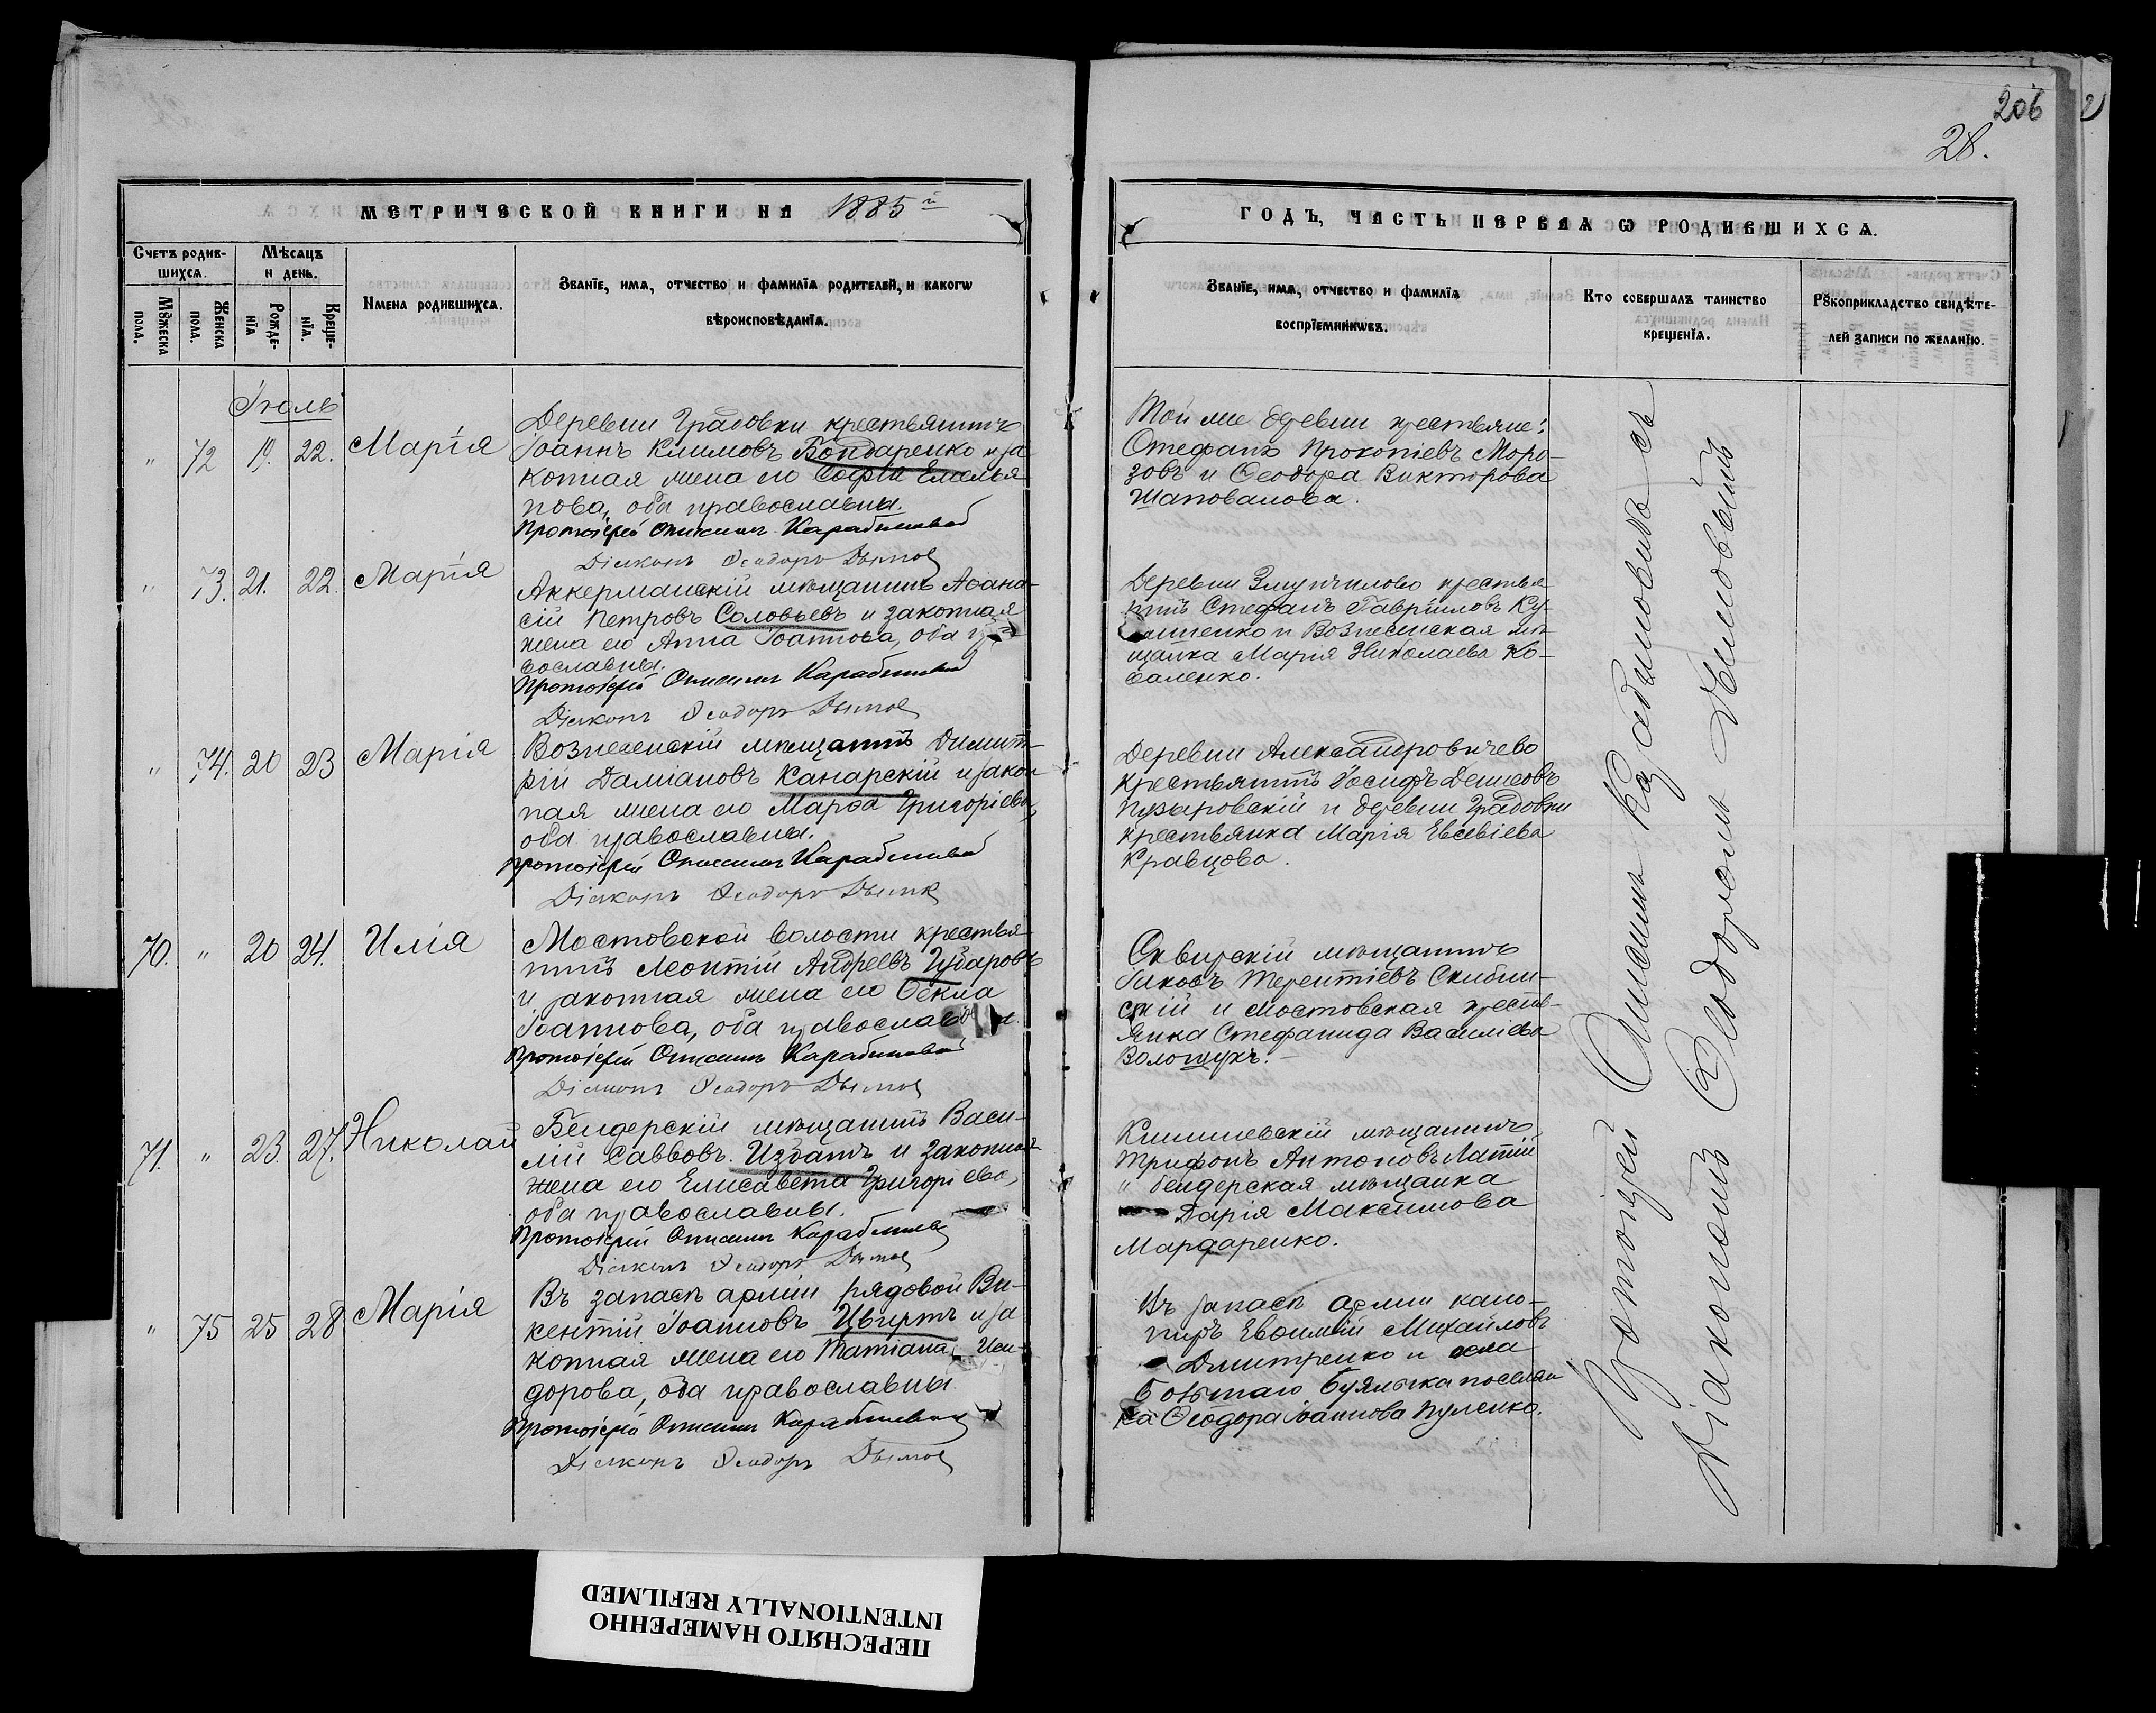 206
28.
МЕТРИЧЕСКОЙ КНИГИ НА 1885й
ГОДЪ, ЧАСТЬ ПЕРВАЯ Ѡ РОДИВШИХСѦ.
Счетъ родив-
шихсѧ.
Мѣсѧцъ
и день.
Мꙋжеска
пола.
Женска
пола.
Рожде-
нїѧ
Креще-
нїѧ.
Имена родившихсѧ.
Званїе, имѧ, отчество и фамилїѧ родителей, и какогѡ
вѣроисповѣданїѧ.
Званїе, имѧ, отчество и фамилїѧ
воспрїемникѡвъ.
Кто совершалъ таинство
крещенїѧ.
Рꙋкоприкладство свидѣте-
лей записи по желанїю.
Іюль
" 72 19. 22. Марія
Деревни Градовки крестьянинъ
Іоаннъ Климовъ Бондаренко и за
конная жена его Софія Емелья
нова, оба православны.
Протоіерей Онисимъ
Діаконъ Ѳеодоръ
Той же деревни крестьяне:
Стефанъ Прокопіевъ Моро-
зовъ и Ѳеодора Викторова
Шаповалова.
" 73. 21. 22. Марія
Аккерманскій мѣщанинъ Аѳана-
сій Петровъ Соловьевъ и законная
жена его Анна Іоаннова, оба
вославны.
Протоіерей Онисимъ
Діаконъ Ѳеодоръ
Деревни крестья
нинъ Стефанъ Гавріиловъ Ку-
и Вознесенская мѣ
щанка Марія Николаева Ко-
валенко.
" 74. 20 23 Марія
Вознесенскій мѣщанинъ Димит-
рій Даміановъ Канарскій и закон
ная жена его Марѳа Григоріева,
оба православны.
Протоіерей Онисимъ
Діаконъ Ѳеодоръ
Деревни Александровичево
крестьянинъ Іосифъ Денисовъ
Пузыровскій и деревни Градовки
крестьянка Марія Евсевіева
Кравцова.
70. " 20 24. Илія
Мостовской волости крестья
нинъ Леонтій Андреевъ Чубаровъ
и законная жена его Ѳекла
Іоаннова, оба православны.
Протоіерей Онисимъ
Діаконъ Ѳеодоръ
Сквирскій мѣщанинъ
Іаковъ Терентіевъ
и Мостовская крест-
янка Стефанида Василіева
Волощукъ.
71. " 23. 27. Николай
Бендерскій мѣщанинъ Васи-
лій Саввовъ и законная
жена его Елисавета Григоріева,
оба православны.
Протоіерей Онисимъ
Діаконъ Ѳеодоръ
Кишиневскій мѣщанинъ
Трифонъ Антоновъ
и бендерская мѣщанка
Дарія Максимова
Мардаренко.
" 75 25 28 Марія
Въ запасѣ арміи рядовой Ви-
кентій Іоанновъ и за
конная жена его Татіана Иси-
дорова, оба православны
Протоіерей Онисимъ
Діаконъ Ѳеодоръ
Въ запасѣ арміи кано-
ниръ Евѳимій Михайловъ
Дмитренко и села
Большаго Буялыка поселян
ка Ѳеодора Іоаннова
Протоіерей Онисимъ съ
Діакономъ Ѳеодоромъ
ПЕРЕСНЯТО НАМЕРЕННО
INTENTIONALLY REFILMED